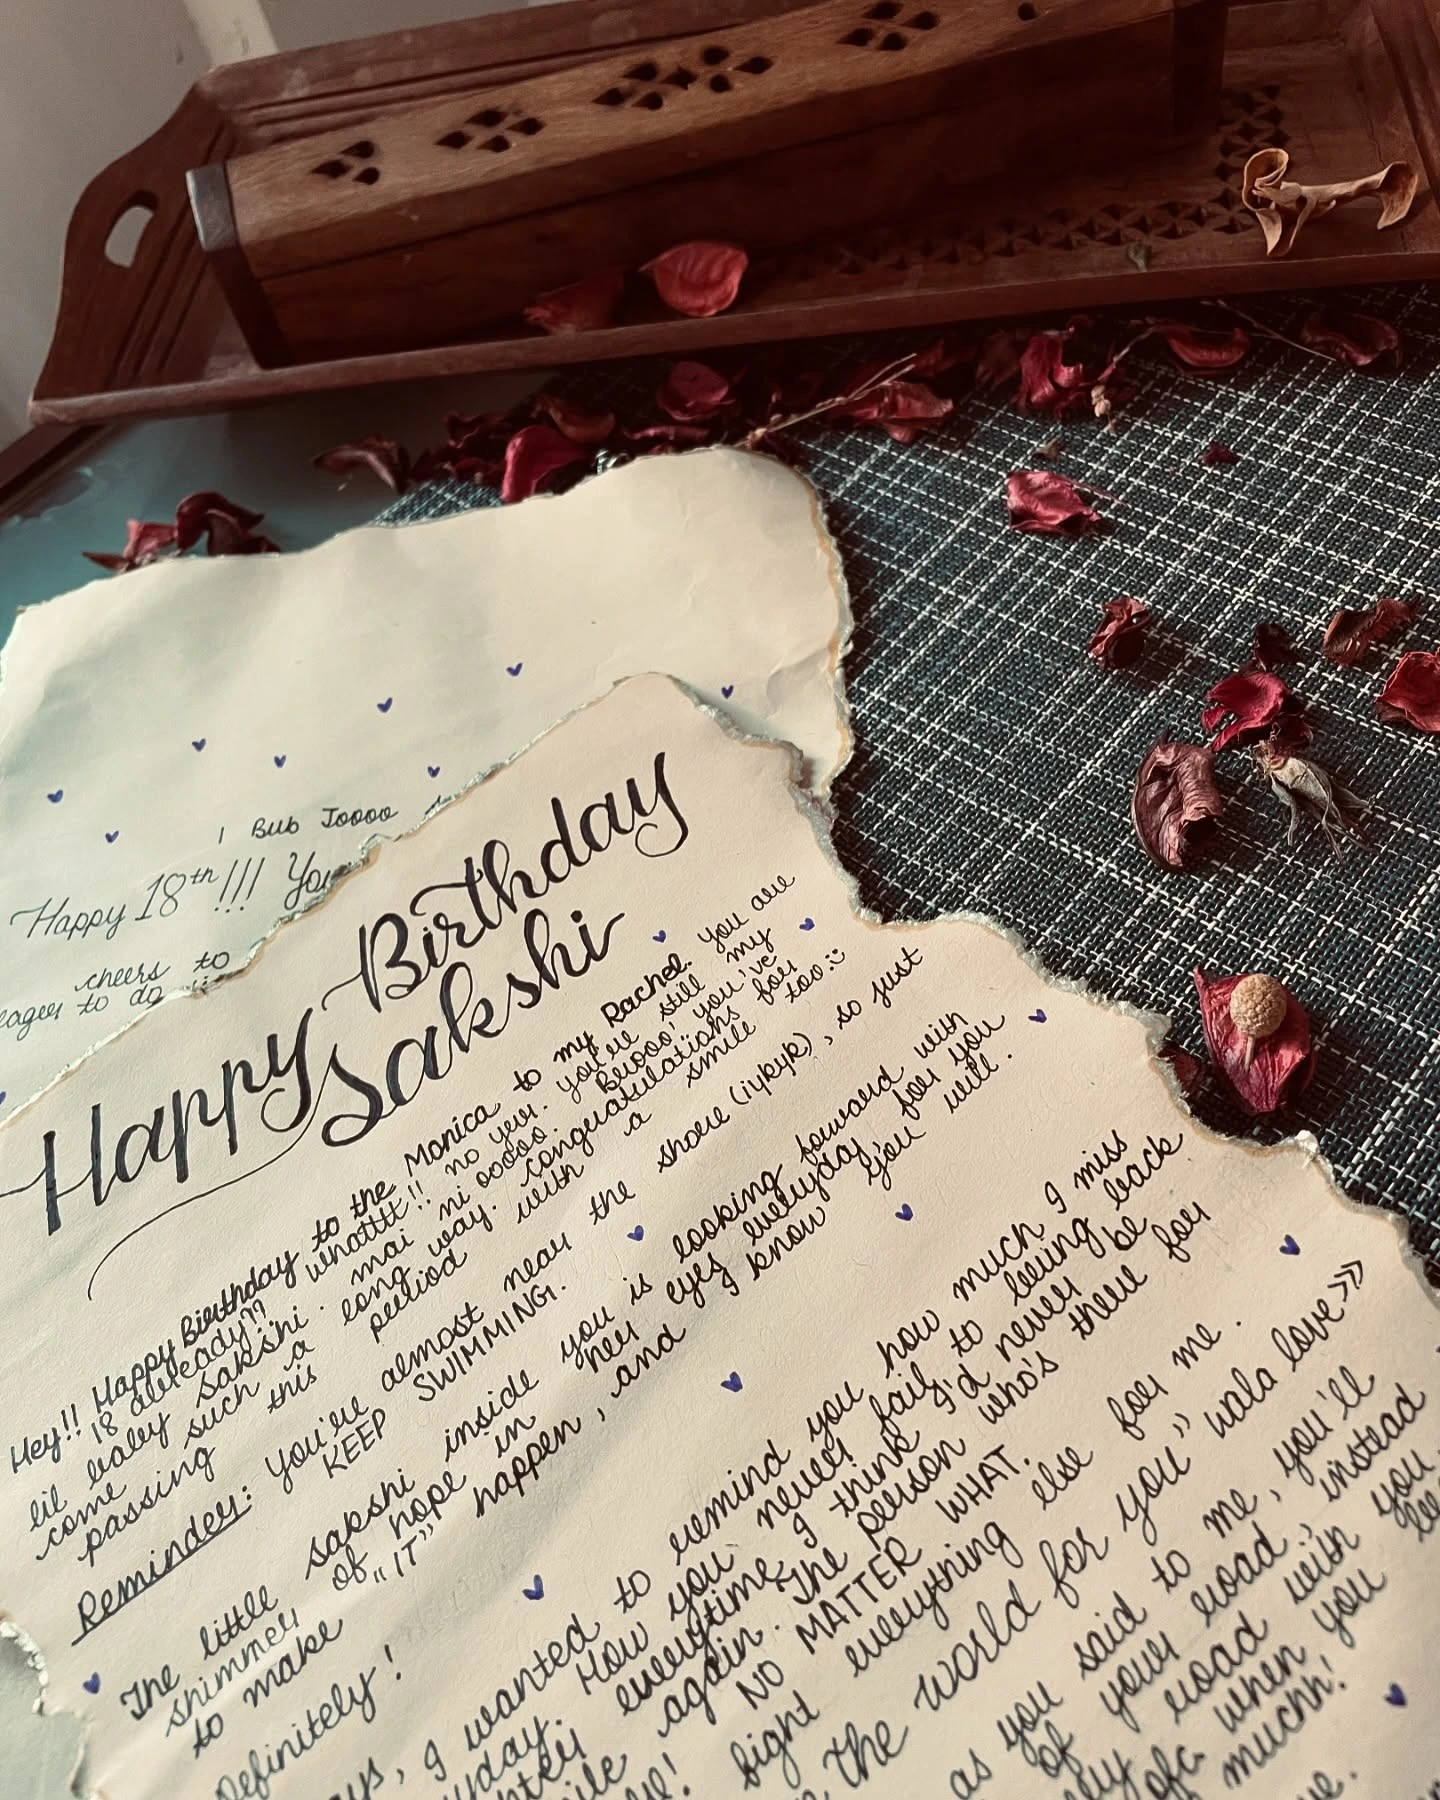 I Bub Joooo
Happy 18th!!! You
cheers to
eager to do
Happy Birthday
Sakshi
Hey!! Happy Birthday to the Monica to my Rachel. You are
18 already?? whatttt!! no yur. you're still my
lil baby sakshi. mai ni oooo. Bruooo, you've
come such a long way. Congratulations for
passing this period with a smile too:)
Reminder: you're almost near the shore (iykyk), so just
KEEP SWIMMING.
The little sakshi inside you is looking forward with
shimmer of hope in her eyes everyday for you
to make "IT" happen, and I know you will.
Definitely!
I wanted to remind you how much I miss
How you never fail to bring back
everytime I think I'd never be
again. The person who's there for
NO MATTER WHAT.
fight everything else for me.
the world for you" wala love>>
as you said to me, you'll
of your road, instead
road with you
ofc when you
muchh!